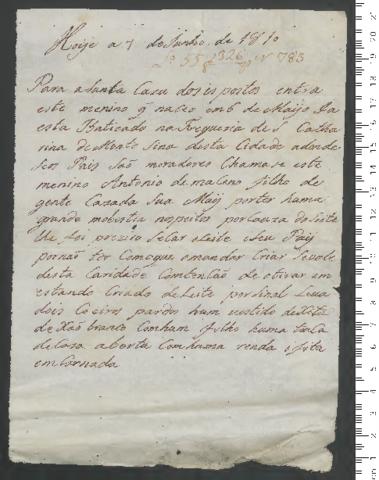 Hoije a 7 de Junho de 1810
Lº 55 fl 326 vº Nº 783
Para a Santa Caza dos espostos entra
este menino q naceo em 6 de Maijo Ja
esta Baticado na Freguezia de S Catha
rina de Monte Sino desta Cidade adonde
seus Pais saõ moradores Chamase este
menino Antonio de mateno filho de
gente Cazada Sua Maij por ter huma
grande molestia nos peitos por Cauza do Leite
lhe foi precizo secar o Leite e seu Paij
por naõ ter Com que o mandar Criar se vale
desta Caridade Com tensaõ de o tirar em
estando Criado de Leite por sinal Leva
dois Coeiros pardos hum vestido de xita
de xaõ branco Com hum filho huma touca
de Casa aberta Com huma renda e fita
emCarnada